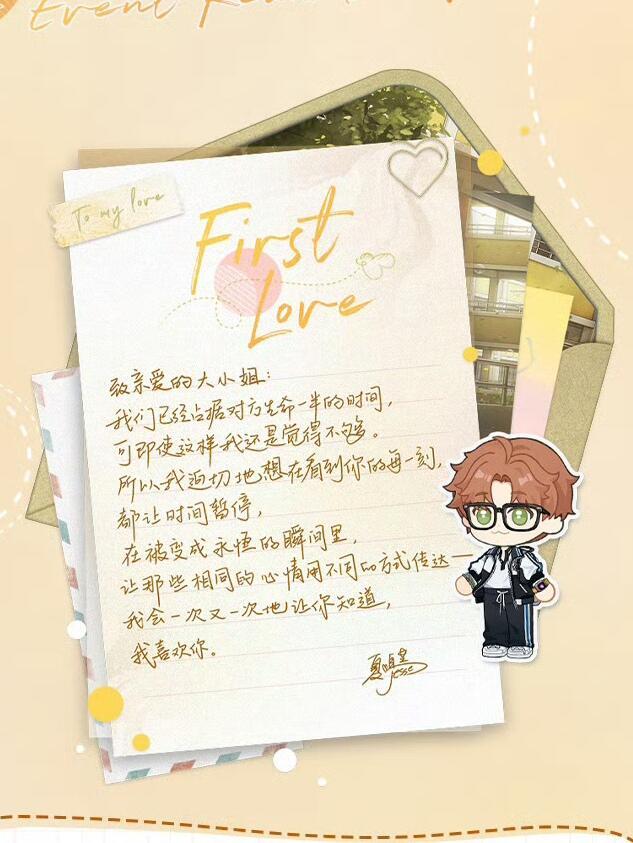 Event
To my love
First
Love
致亲爱的大小姐：
我们已经占据对方生命一半的时间，
可即使这样我还是觉得不够。
所以我迫切地想在看到你的每一刻，
都让时间暂停，
在被变成永恒的瞬间里，
让那些相同的心情用不同的方式传达——
我会一次又一次地让你知道，
我喜欢你。
夏鸣星
Jesse